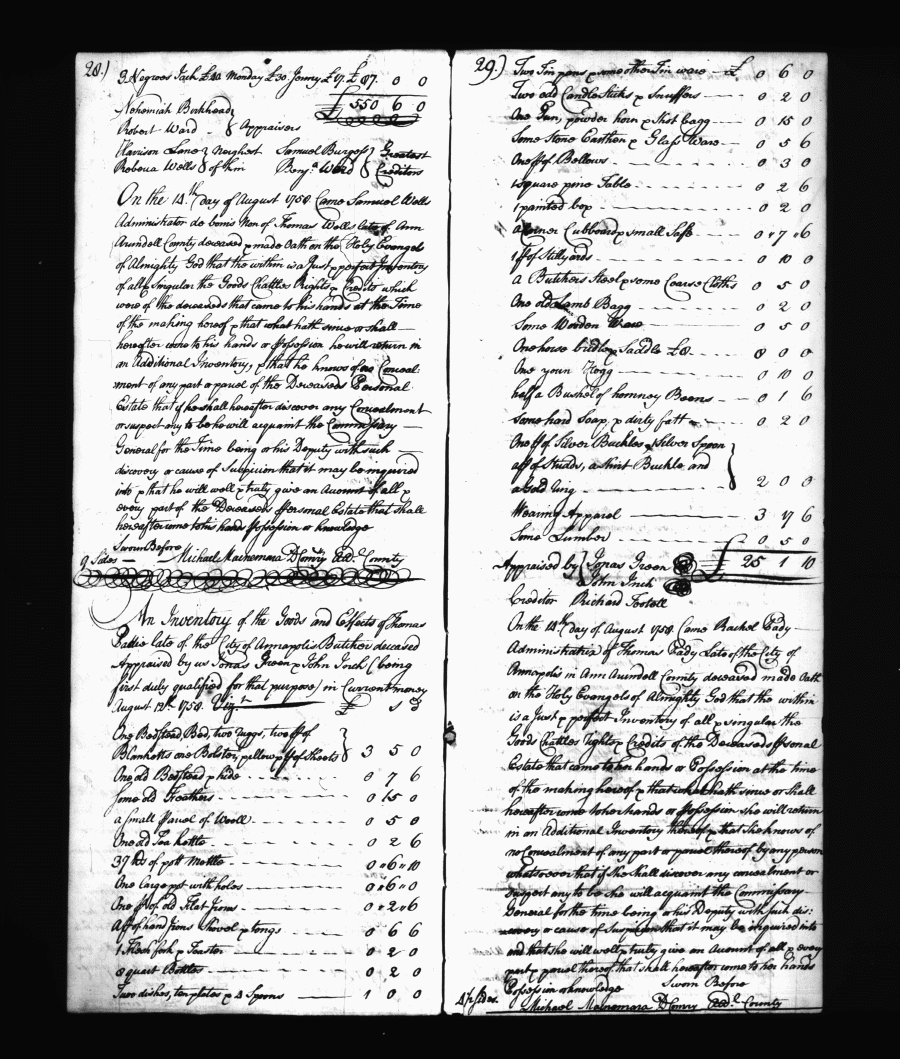 28.)
3 Negroes Jack £40 Monday £30 Jenny £17. £ 87 0 0
£ 550 6 0
Nehemiah Birkhead
Robert Ward } Appraisers
Harrison Lane } Neighest Samuel Burgess } Greatest
Robecca Wells } of kin Benja. Ward } Creditors
On the 14th day of August 1758 Came Samuel Wells
Administrator de bonis Non of Thomas Wells late of Ann
Arundell County deceased & made Oath on the Holy Evangels
of Almighty God that the within is a Just & perfect Inventory
of all & Singular the Goods Chattles Rights & Credits which
were of the deceaseds that came to his hands at the Time
of the making hereof & that what hath since or shall
hereafter come to his hands or Possession he will return in
an Additional Inventory, & that he knows of no Conceal-
ment of any part or parcel of the Deceaseds Personal
Estate that if he shall hereafter discover any Concealment
or suspect any to be he will acquaint the Commissary
General for the Time being or his Deputy with such
discovery or cause of Suspicion that it may be inquired
into & that he will well & truly give an Account of all &
every part of the Deceaseds Personal Estate that shall
hereafter come to his hands Possession or knowledge
Sworn Before
9 Sides — Michael Macnemara D Comry AAdl. County
An Inventory of the Goods and Effects of Thomas
late of the City of Annapolis Butcher deceased
Appraised by us Jonas Green & John Inch (being
first duly qualified for that purpose) in Current money
August 12th 1758. Vizt £ s d
One Bedstead Bed, two ruggs, two pr of
Blanketts one Bolster, pillow & pr of Sheets } 3 5 0
One old Bedstead & hide 0 7 6
Some old Feathers 0 15 0
a small Parcel of Wooll 0 5 0
One old Tea kettle 0 2 6
39 lbs of pott Mettle 0 6 10
One large pot with holes 0 6 0
One pr of old Flat Irons 0 2 6
A pr of hand Irons Shovel & tongs 0 6 6
1 Flesh fork & Toaster 0 2 0
8 quart Bottles 0 2 0
Two dishes, ten plates & 4 Spoons 1 0 0
29.)
Two Tin pans & some other Tin ware £ 0 6 0
Two odd Candlesticks & Snuffers 0 2 0
One Gun, powder horn & Shot bagg 0 15 0
Some Stone Earthen & Glass Ware 0 5 6
One pr of Bellows 0 3 0
1 square pine Table 0 2 6
1 painted box 0 2 0
a Corner Cubboard & small Safe 0 7 6
1 pr of Stillyards 0 10 0
a Butchers Steel & some Coarse Cloths 0 5 0
One old Lamb Bagg 0 2 0
Some Wooden Ware 0 5 0
One horse bridle & Saddle £8 8 0 0
One youn Hogg 0 10 0
half a Bushel of homney Beens 0 1 6
Some hard Soap & dirty fatt 0 2 0
One pr of Silver Buckles & Silver Spoon
a pr of Studds, a Shirt Buckle and
a Gold Ring } 2 0 0
Wearing Apparel 3 17 6
Some Lumber 0 5 0
Appraised by { Jonas Green £ 25 1 10
John Inch
Creditor Richard Tootell
On the 14th day of August 1758 Came Rachel
Administratrix of Thomas Late of the City of
Annapolis in Ann Arundell County deceased made Oath
on the Holy Evangels of Almighty God that the within
is a Just & perfect Inventory of all & singular the
Goods Chattles Rights & Credits of the Deceaseds Personal
Estate that came to her hands or Possession at the time
of the making hereof & that what hath since or Shall
hereafter come to her hands or Possession she will return
in an Additional Inventory thereof & that She knows of
no Concealment of any part or parcel thereof by any person
whatsoever that if She Shall discover any concealment or
suspect any to be She will acquaint the Commissary
General for the time being or his Deputy with such dis:
covery or cause of Suspicion that it may be inquired into
and that she will well & truly give an Account of all & every
part & parcel thereof that shall hereafter come to her hands
Possession or knowledge Sworn Before
4½ sides. Michael Macnemara D Comry AAdl County